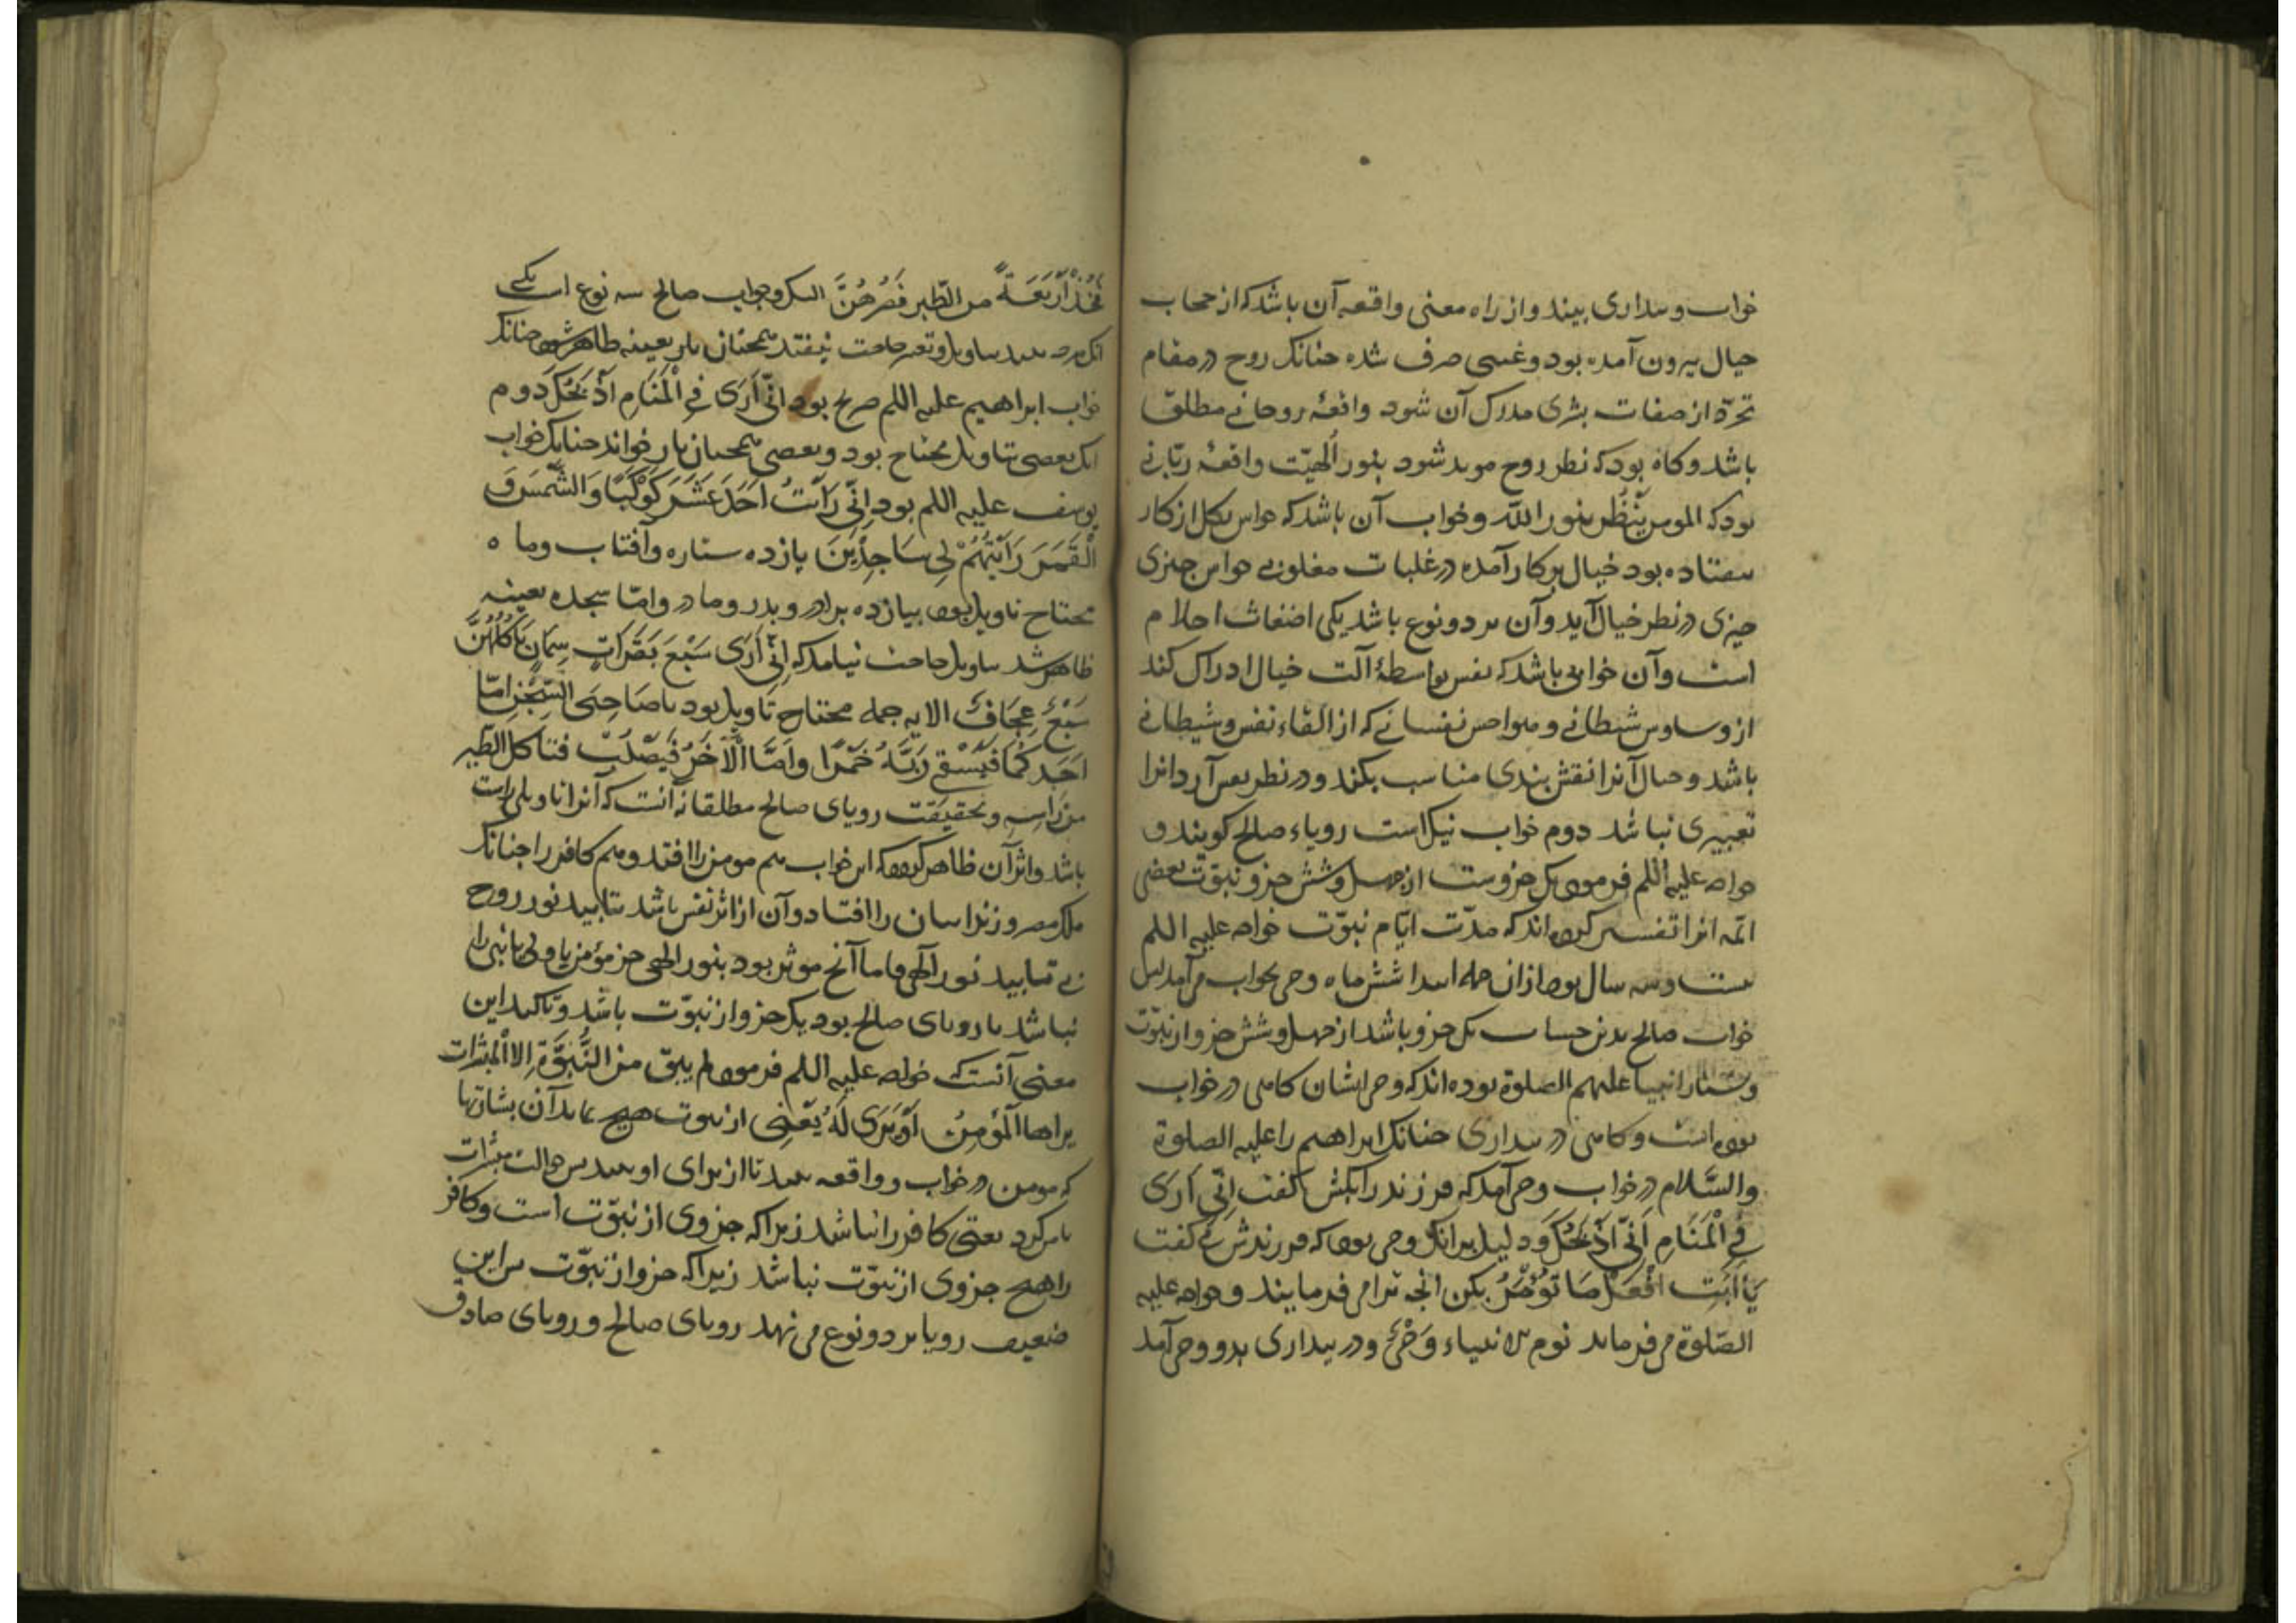 خواب و بیداری بیند و از راه معنی واقعه آن باشد که از حجاب
خیال بیرون آمده بود و غیبی صرف شده چنانک روح در مقام
تجرّد از صفات بشری مدرک آن شود واقعهٔ روحانی مطلق
باشد و کاه بود که نظر روح موید شود بنور الهیّت واقعهٔ ربّانی
بود که المومن یَنْظُر بنور اللّه و خواب آن باشد که حواس بکل از کار
بیفتاده بود خیال بر کار آمده در غلبات مغلوبی حواس چیزی
چیزی در نظر خیال آید و آن بر دو نوع باشد یکی اضغاث احلام
است و آن خوابی باشد که نفس بواسطهٔ آلت خیال ادراک کند
از وساوس شیطانی و هواجس نفسانی که از القاء نفس و شیطانی
باشد و خیال آنرا نقش بندی مناسب بکند و در نظر نفس آرد انرا
تعبیری نباشد دوم خواب نیک است رویاء صالح کویند و
خواجه علیه اللم فرموده یک جزوست از چهل و شش جزو نبوّت بعضی
ائمّه انرا تفسیر کرده اند که مدّت ایّام نبوّت خواجه علیه اللم
بیست و سه سال بوده از ان جمله ابتدا شش ماه وحی بخواب می آمد پس
خواب صالح بدین حساب یک جزو باشد از چهل و شش جزو از نبوّت
و بسیار انبیا علیهم الصلوة بوده اند که وحی ایشان کاهی در خواب
بوده است و کاهی در بیداری چنانک ابراهیم را علیه الصلوة
والسَّلام در خواب وحی آمد که فرزند را بکش کفت اِنّی اَرَی
فِی الْمَنَامِ اَنّی اَذْبَحُکَ و دلیل برانک وحی بوده که فرزندش کفت
یَا اَبَتِ افْعَلْ مَا تُؤْمَرُ بکن انچه ترا می فرمایند و خواجه علیه
الصّلوة می فرماید نوم الانبیاء وَحْیٌ و در بیداری بدو وحی آمد
فَخُذْ اَرْبَعَةً من الطّیر فَصُرْهُنَّ الیک و خواب صالح سه نوع است یکی
انک هرچه بیند بتاویل و تعبیر حاجت نیفتد همچنان بعینه ظاهر شود چنانک
خواب ابراهیم علیه اللم صریح بود انّی اَرَی فی الْمَنَامِ اَذْبَحُکَ دوم
انک بعضی بتاویل محتاج بود و بعضی همچنان باز خواند چنانک خواب
یوسف علیه اللم بود اِنّی رَاَیْتُ اَحَدَ عَشَرَ کَوْکَبًا وَ الشَّمْسَ وَ
الْقَمَرَ رَاَیْتُهُمْ لِی سَاجِدِینَ یازده ستاره و آفتاب و ماه
محتاج تاویل بود بیازده برادر و پدر و مادر و امّا سجده بعینه
ظاهر شد بتاویل حاجت نیامد که اِنّی اَرَی سَبْعَ بَقَرَاتٍ سِمَانٍ یَاْکُلُهُنَّ
سَبْعٌ عِجَافٌ الایه جمله محتاج تاویل بود یا صَاحِبَیِ السِّجْنِ امّا
اَحَدُکُمَا فَیَسْقِی رَبَّهُ خَمْرًا و اَمَّا الْآخَرُ فَیُصْلَبُ فتاکل الطّیر
من رَاسِهِ و بحقیقت رویای صالح مطلقا نه آنست که آنرا تاویلی راست
باشد و اثر آن ظاهر که این خواب هم مومن را افتد و هم کافر را چنانک
ملک مصر و زندانیان را افتاد و آن از اثر نفس باشد بتایید نور روح
بی تایید نور الهی و اما آنچ موثر بود بنور الهی جز مؤمن یا ولی یا نبی را
نباشد یا رویای صالح بود یک جزو از نبوّت باشد و تاکید این
معنی آنست که خواجه علیه اللم فرموده لم یبق من النُّبُوَّةِ اِلا الْمبشّرات
یراها الْمُؤمِنُ اَوْ یُرَی لَهُ یعْنِی از نبوت هیچ نماند آن بشارتها
که مومن در خواب و واقعه بیند تا از برای او بینند پس حوالت مبشرات
یعنی کافر را نباشد زیرا که جزوی از نبوّت است و کافر
را هیچ جزوی از نبوّت نباشد زیرا که جزو از نبوّت پس این
ضعیف رویا بر دو نوع می نهد رویای صالح و رویای صادق